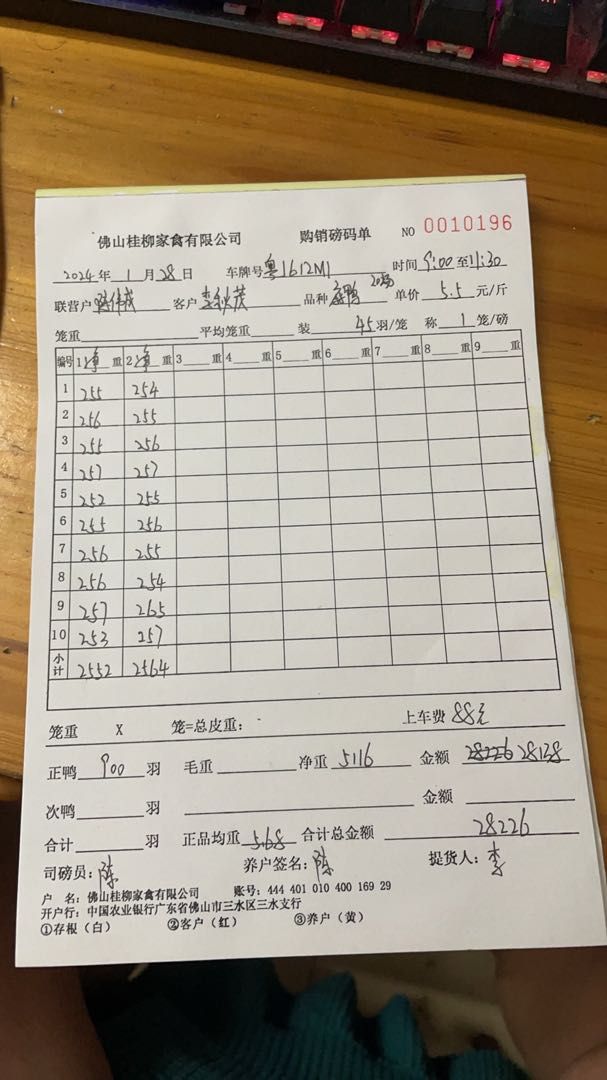 佛山桂柳家禽有限公司 购销磅码单 NO 0010196
2024年 1月28日 车牌号 粤J612M1 时间 9:00至11:30
联营户 伟成 客户 李秋茂 品种 单价 5.5 元/斤
笼重 平均笼重 装 45 羽/笼 称 1 笼/磅
编号 1净重 2净重 3重 4重 5重 6重 7重 8重 9重
1 255 254
2 256 255
3 255 256
4 257 257
5 252 255
6 255 256
7 256 255
8 256 254
9 257 265
10 253 257
小计 2552 2564
笼重 X 笼=总皮重: 上车费 88元
正鸭 900 羽 毛重 净重 5116 金额 28226 28138
次鸭 羽 金额
合计 羽 正品均重 5.68 合计总金额 28226
司磅员: 陈 养户签名: 陈 提货人: 李
户 名: 佛山桂柳家禽有限公司 账号: 444 401 010 400 169 29
开户行: 中国农业银行广东省佛山市三水区三水支行
①存根（白） ②客户（红） ③养户（黄）